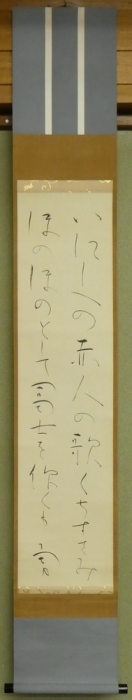 いにしへの赤人の歌くちすさみ
ほのほのとして富士を仰くも